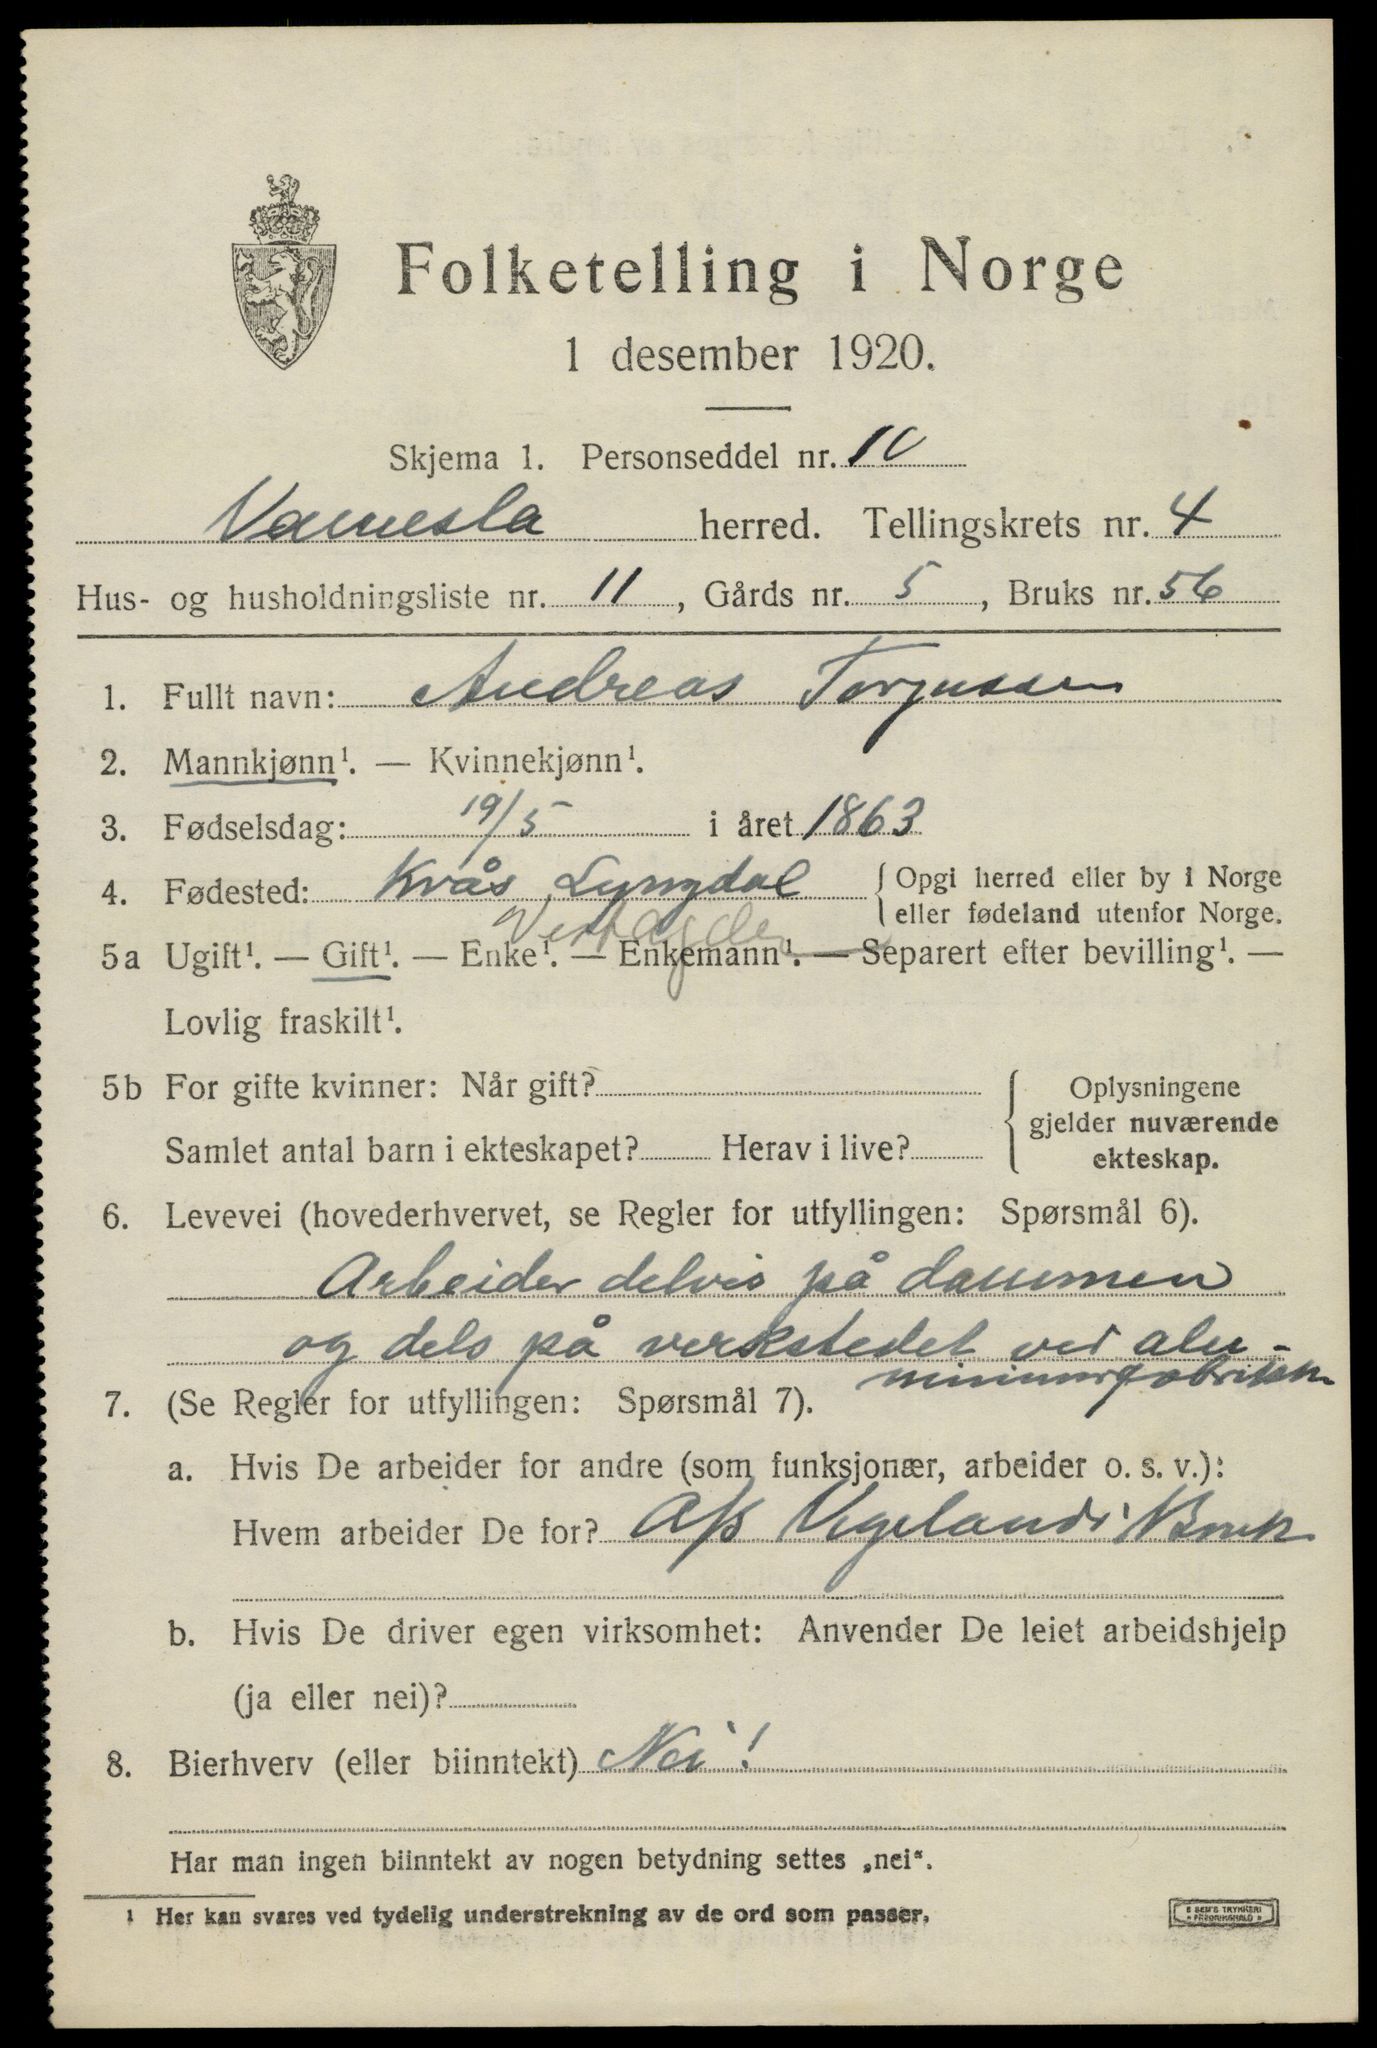 Folketelling i Norge
1 desember 1920.
Skjema 1. Personseddel nr. 10
Vennesla herred. Tellingskrets nr. 4
Hus- og husholdningsliste nr. 11, Gårds nr. 5, Bruks nr. 56
1. Fullt navn: Andreas Torjussen
2. Mannkjønn¹. — Kvinnekjønn¹.
3. Fødselsdag: 19/5 i året 1863
4. Fødested: Kvås Lyngdal { Opgi herred eller by i Norge
eller fødeland utenfor Norge.
Vestagder
5a Ugift¹. — Gift¹. — Enke¹. — Enkemann¹. — Separert efter bevilling¹. —
Lovlig fraskilt¹.
5b For gifte kvinner: Når gift?
Samlet antal barn i ekteskapet? Herav i live?
Oplysningene
gjelder nuværende
ekteskap.
6. Levevei (hovederhvervet, se Regler for utfyllingen: Spørsmål 6).
Arbeider delvis på dammen
og dels på verkstedet ved alu-
miniumfabrikken
7. (Se Regler for utfyllingen: Spørsmål 7).
a. Hvis De arbeider for andre (som funksjonær, arbeider o. s. v.):
Hvem arbeider De for? A/s Vigelands Bruk
b. Hvis De driver egen virksomhet: Anvender De leiet arbeidshjelp
(ja eller nei)?
8. Bierhverv (eller biinntekt) Nei!
Har man ingen biinntekt av nogen betydning settes „nei“.
¹ Her kan svares ved tydelig understrekning av de ord som passer.
E SEM'S TRYKKERI
FREDRIKSHALD